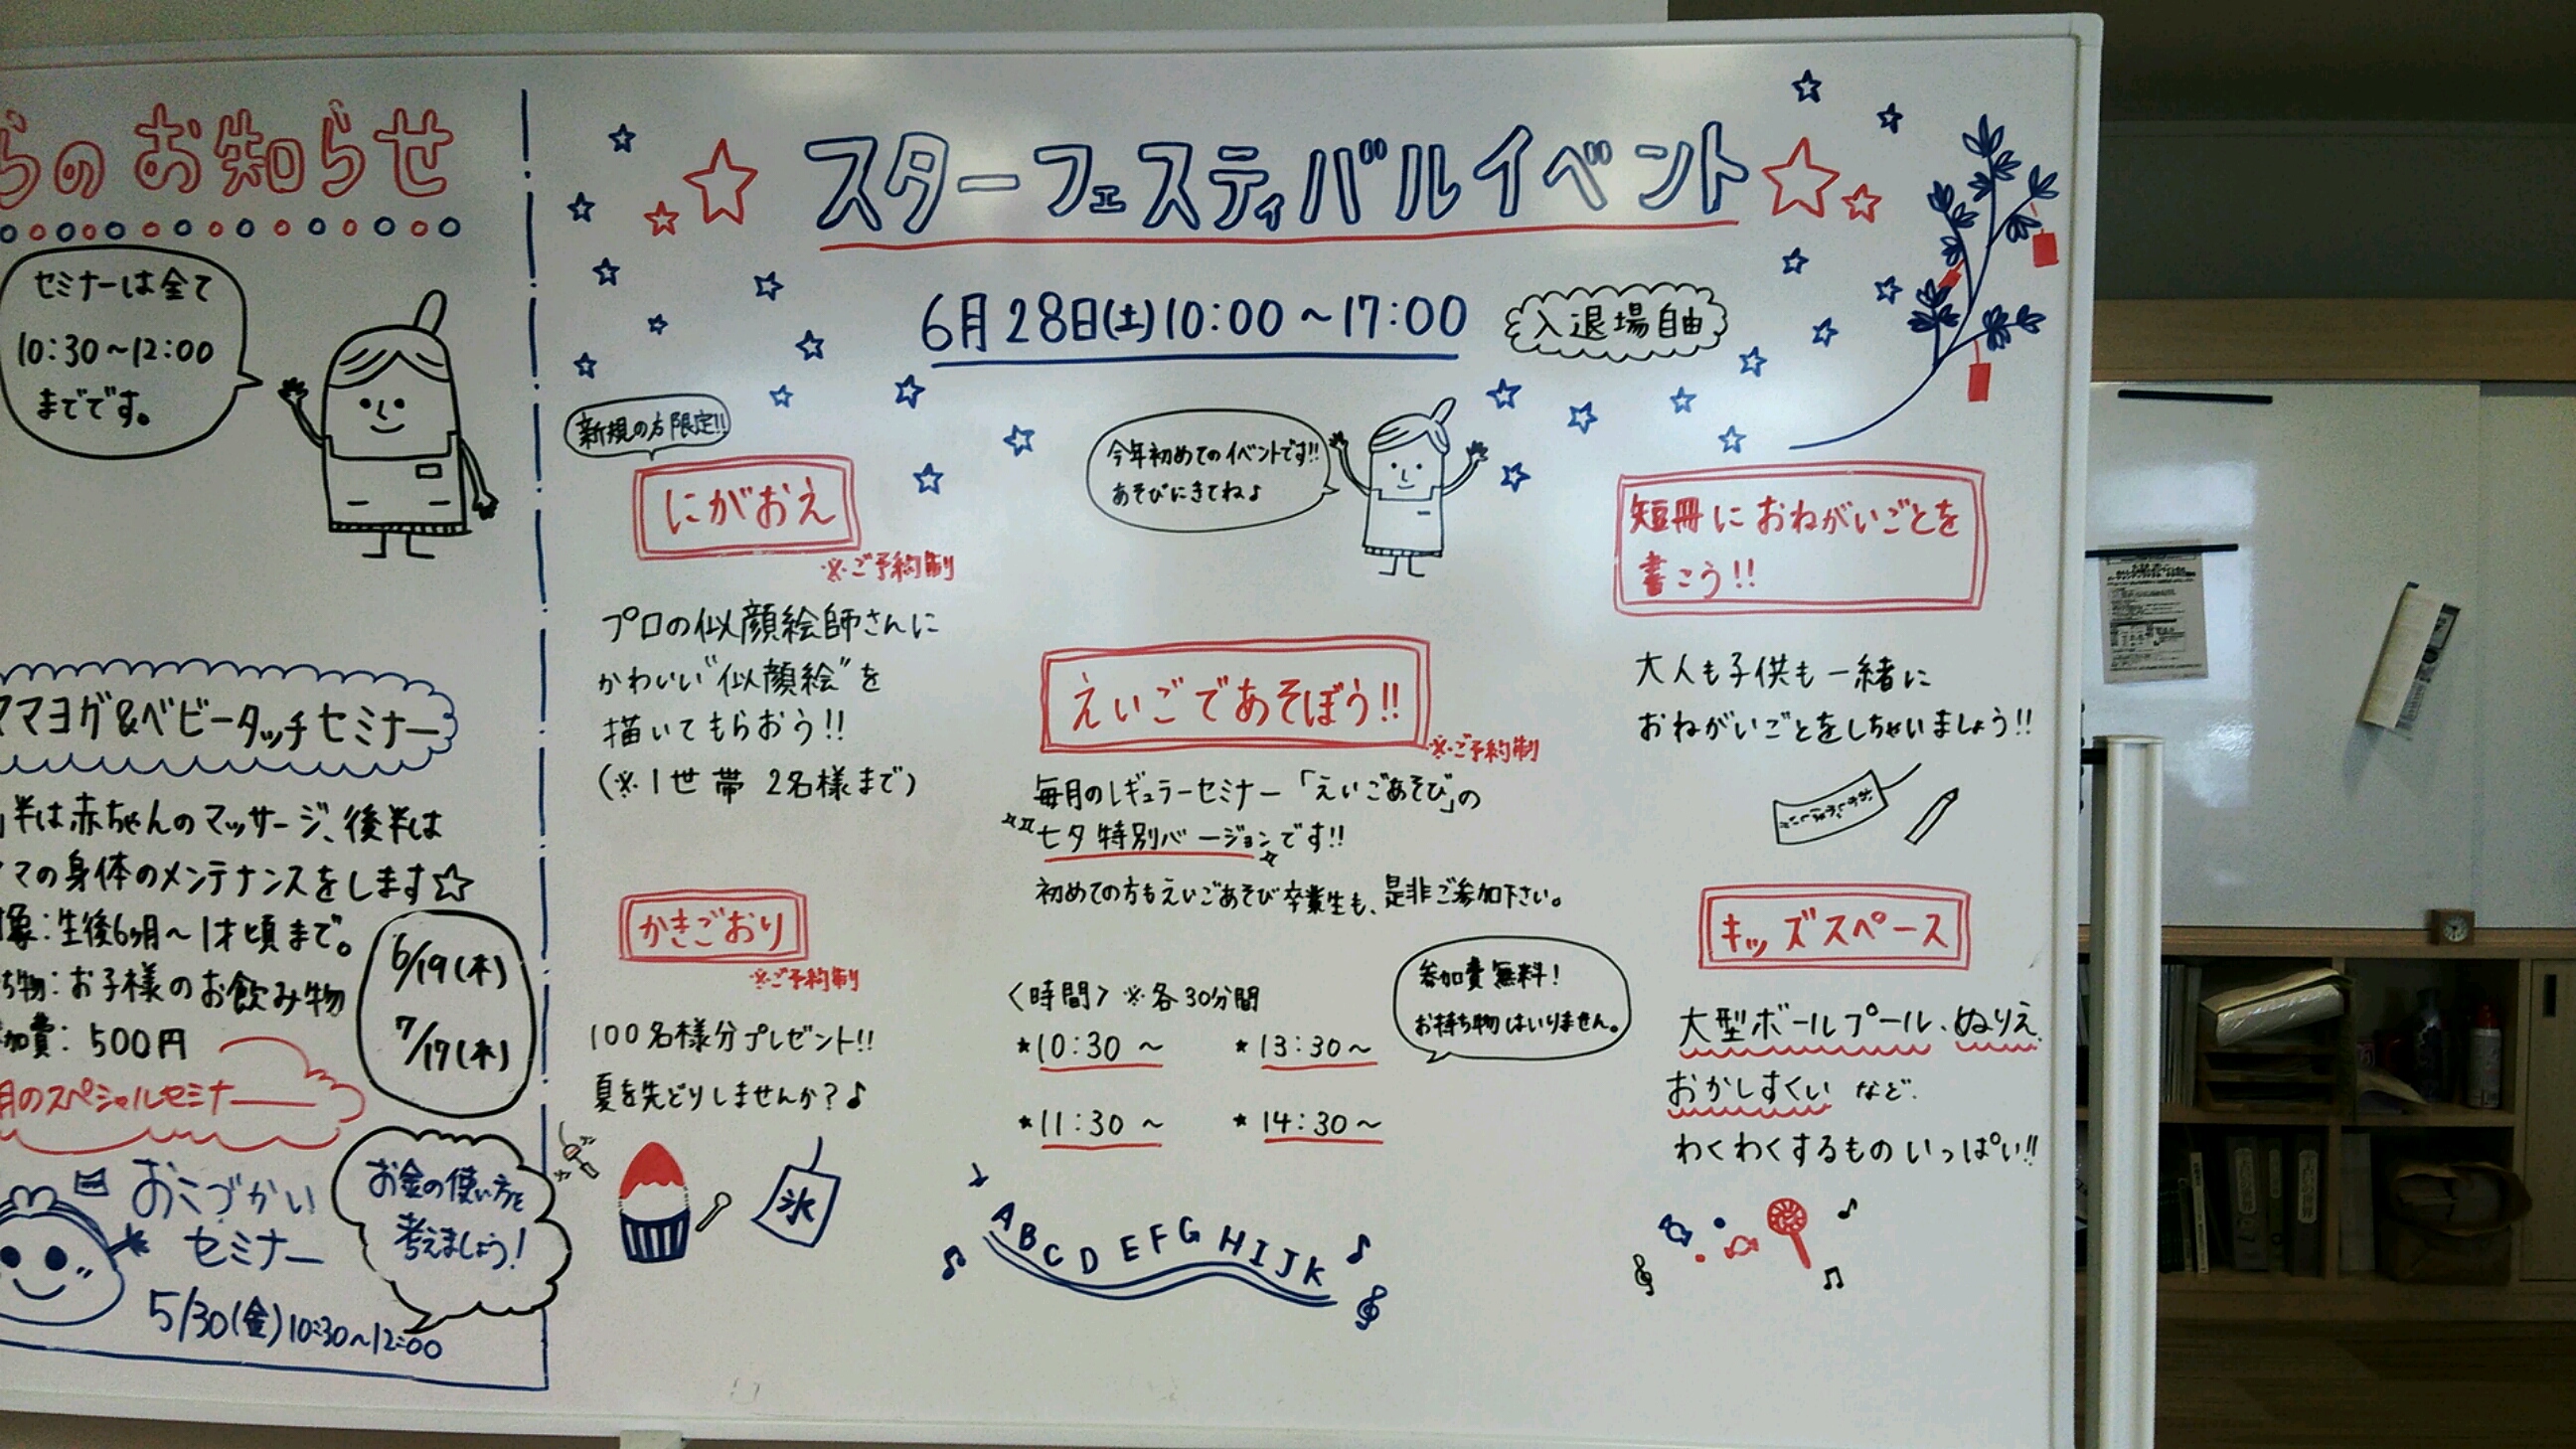 らのお知らせ
セミナーは全て
10:30～12:00
までです。
ママヨガ&ベビータッチセミナー
半は赤ちゃんのマッサージ、後半は
マの身体のメンテナンスをします☆
象:生後6ヶ月～1才頃まで。
ち物:お子様のお飲み物
加費:500円
6/19(木)
7/17(木)
月のスペシャルセミナー
おこづかい
セミナー
5/30(金)10:30～12:00
お金の使い方を
考えましょう!
スターフェスティバルイベント
6月28日(土)10:00～17:00
入退場自由
新規の方限定!!
にがおえ
※ご予約制
プロの似顔絵師さんに
かわいい"似顔絵"を
描いてもらおう!!
(※1世帯 2名様まで)
かきごおり
※ご予約制
100名様分プレゼント!!
夏を先どりしませんか?♪
氷
今年初めてのイベントです!!
あそびにきてね♪
えいごであそぼう!!
※ご予約制
毎月のレギュラーセミナー「えいごあそび」の
七夕特別バージョンです!!
初めての方もえいごあそび卒業生も、是非ご参加下さい。
〈時間〉※各30分間
★10:30～ ★13:30～
★11:30～ ★14:30～
参加費無料!
お持ち物はいりません。
ABCDEFGHIJK
短冊におねがいごとを
書こう!!
大人も子供も一緒に
おねがいごとをしちゃいましょう!!
キッズスペース
大型ボールプール、ぬりえ、
おかしすくい など.
わくわくするものいっぱい!!